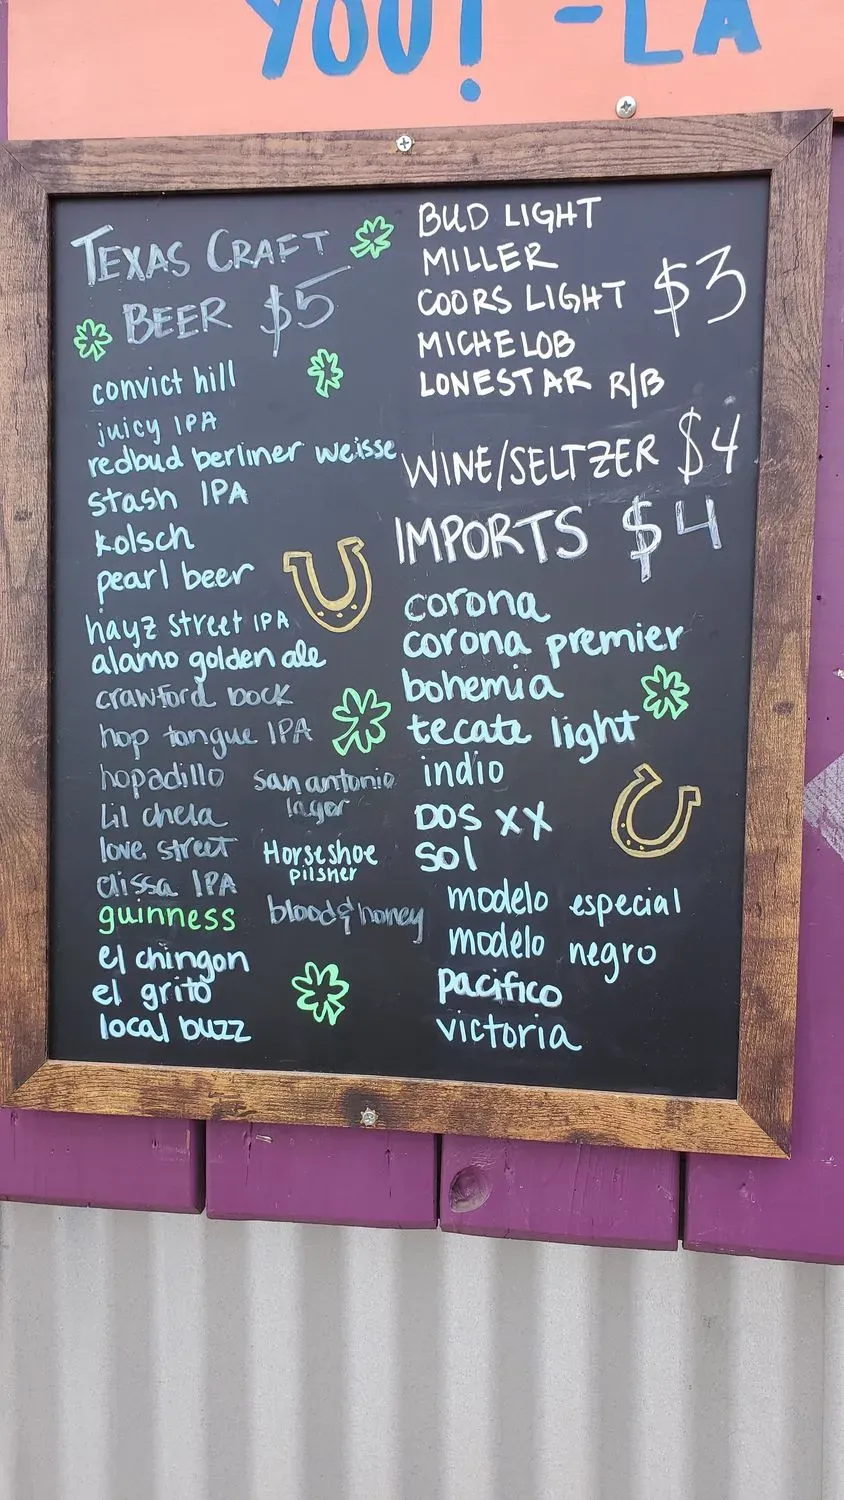 YOU! - LA
TEXAS CRAFT
BEER $5
convict hill
juicy IPA
redbud berliner weisse
stash IPA
kolsch
pearl beer
hayz street IPA
alamo golden ale
crawford bock
hop tongue IPA
hopadillo
Lil chela
love street
elissa IPA
guinness
el chingon
el grito
local buzz
san antonio
lager
Horseshoe
pilsner
blood & honey
BUD LIGHT
MILLER
COORS LIGHT $3
MICHELOB
LONESTAR R/B
WINE/SELTZER $4
IMPORTS $4
corona
corona premier
bohemia
tecate light
indio
DOS XX
sol
modelo especial
modelo negro
pacifico
victoria